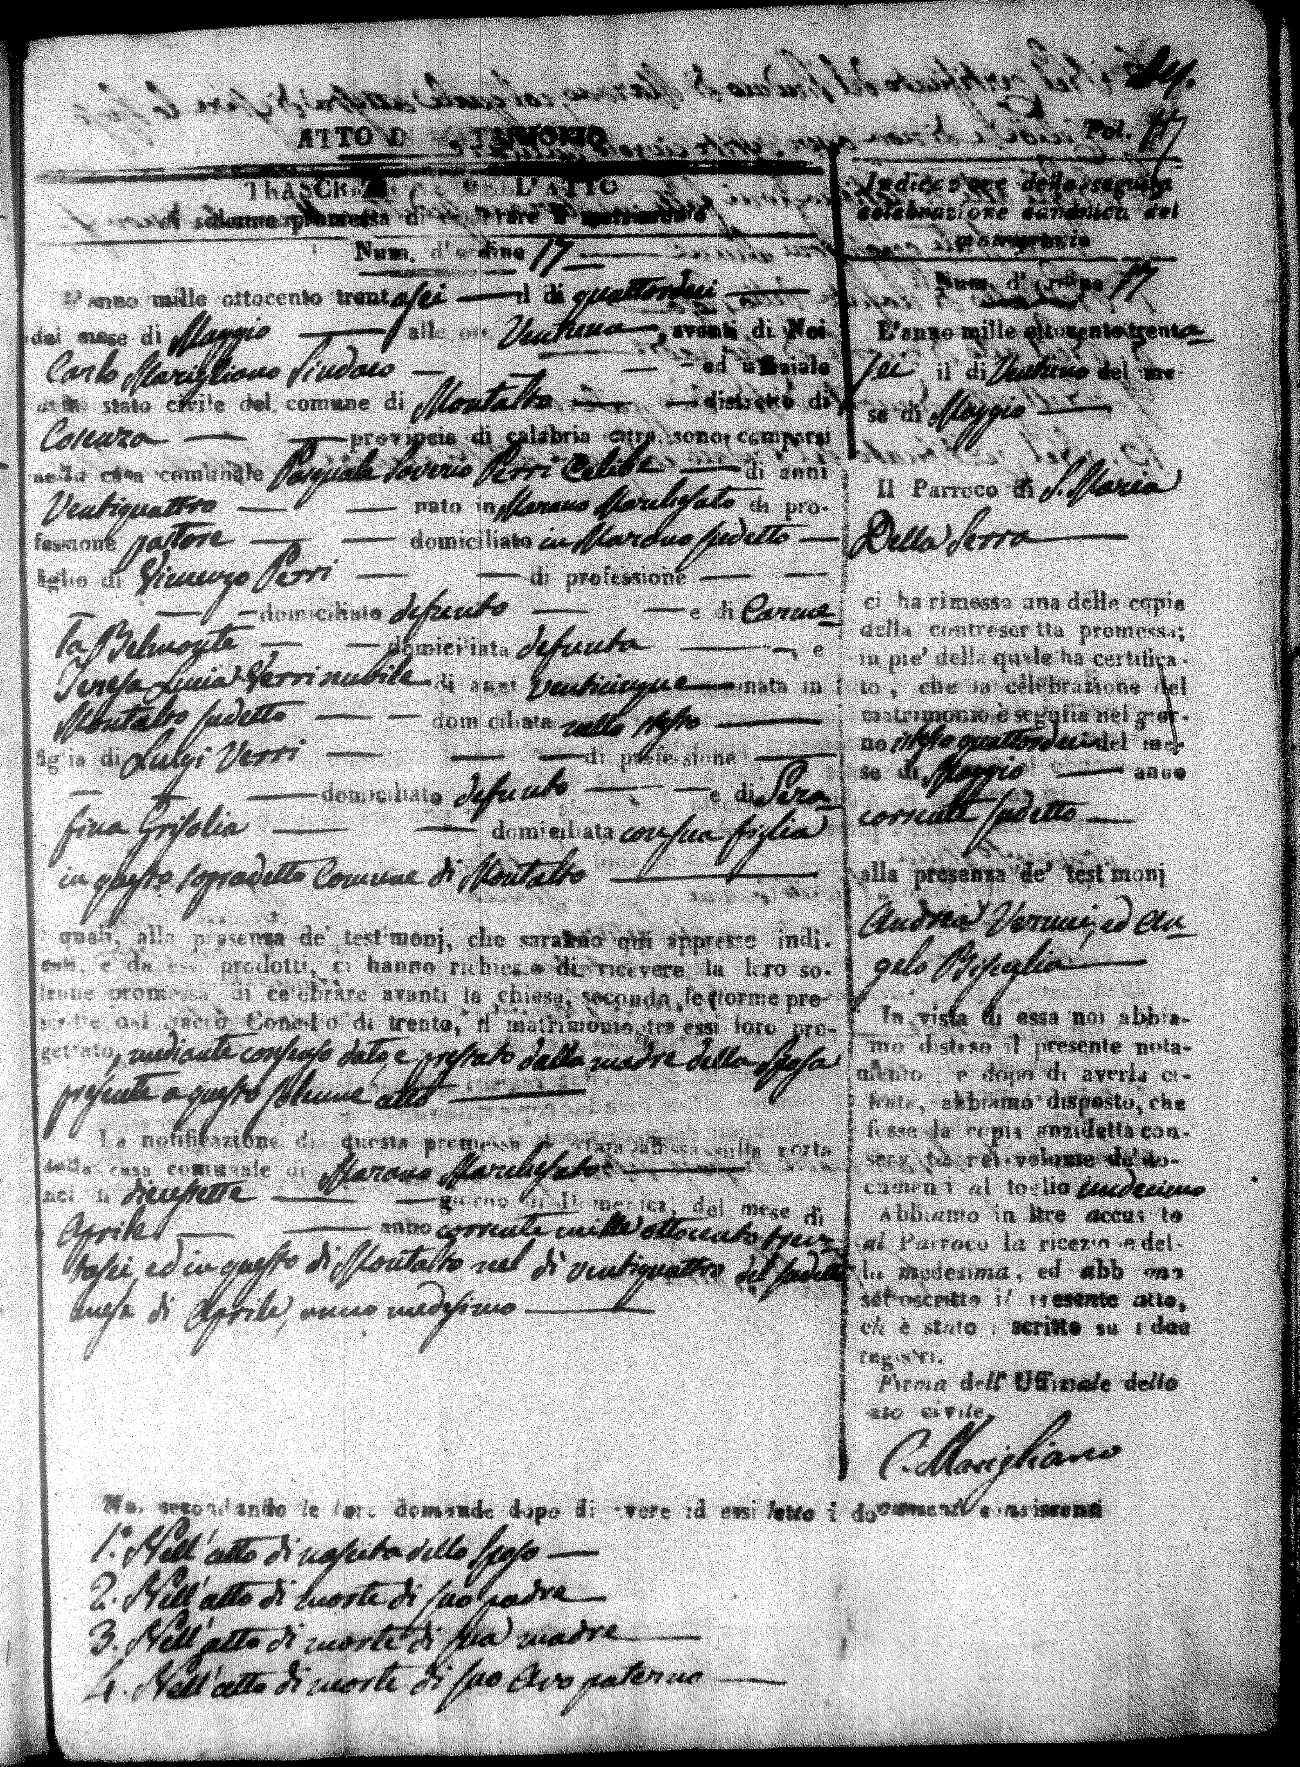 Fol. 117
ATTO DI MATRIMONIO
TRASCRIZIONE DELL'ATTO
solenne promessa di celebrare il matrimonio
Num. d'ordine 17
L'anno mille ottocento trentasei il dì quattordici
del mese di Maggio alle ore Ventuna, avanti di Noi
Carlo Marigliano Sindaco ed uffiziale
dello stato civile del comune di Montalto distretto di
Cosenza provincia di calabria citra, sono comparsi
nella casa comunale Pasquale Saverio Perri Celibe di anni
Ventiquattro nato in Marano Marchesato di pro-
fessione pastore domiciliato in Marano sudetto
figlio di Vincenzo Perri di professione
domiciliato defunto e di Carme
la Belmonte domiciliata defunta, e
Teresa Lucia Verri nubile di anni venticinque nata in
Montalto sudetto domiciliata nello stesso
figlia di Luigi Verri di professione
domiciliato defunto e di Sera
fina Grisolia domiciliata con sua figlia
in questo sopradetto Comune di Montalto
quali, alla presenza de' testimonj, che saranno qui appresso indi-
cati, e da essi prodotti, ci hanno richiesto di ricevere la loro so-
lenne promessa di celebrare avanti la chiesa, secondo le forme pre-
scritte dal sacro Concilio di trento, il matrimonio tra essi loro pro-
gettato, mediante consenso dato, e prestato dalla madre della Sposa
presente a questo solenne atto
La notificazione di questa promessa è stata affissa sulla porta
della casa comunale di Marano Marchesato
nel dì diecisette giorno di Domenica, del mese di
Aprile anno corrente mille ottocento tren
tasei, ed in questo di Montalto nel dì ventiquattro del sudetto
mese di Aprile, anno medesimo
Indicazione della seguita
celebrazione canonica del
matrimonio
Num. d'ordine 17
L'anno mille ottocento trenta
sei il dì Ventuno del me-
se di Maggio
Il Parroco di S. Maria
Della Serra
ci ha rimesso una delle copie
della controscritta promessa;
in pie' della quale ha certifica-
to, che la celebrazione del
matrimonio è seguita nel gior-
no istesso quattordici del me-
se di Maggio anno
corrente sudetto
alla presenza de' testimonj
Andrea Vernui, ed An
gelo Bisciglia
In vista di essa noi abbia-
mo disteso il presente nota-
mento e dopo di averla ci-
frata, abbiamo disposto, che
fosse la copia anzidetta con-
servata nel volume de' do-
cumenti al foglio undecimo
Abbiamo in oltre accusato
al Parroco la ricezione del-
la medesima, ed abbiamo
sottoscritto il presente atto,
ch' è stato iscritto su i due
registri.
Firma dell' Uffiziale dello
stato civile.
C. Marigliano
Noi secondando le loro domande dopo di avere ad essi letto i documenti consistenti
1.° Nell'atto di nascita dello Sposo
2. Nell'atto di morte di suo padre
3. Nell'atto di morte di sua madre
4. Nell'atto di morte di suo Avo paterno